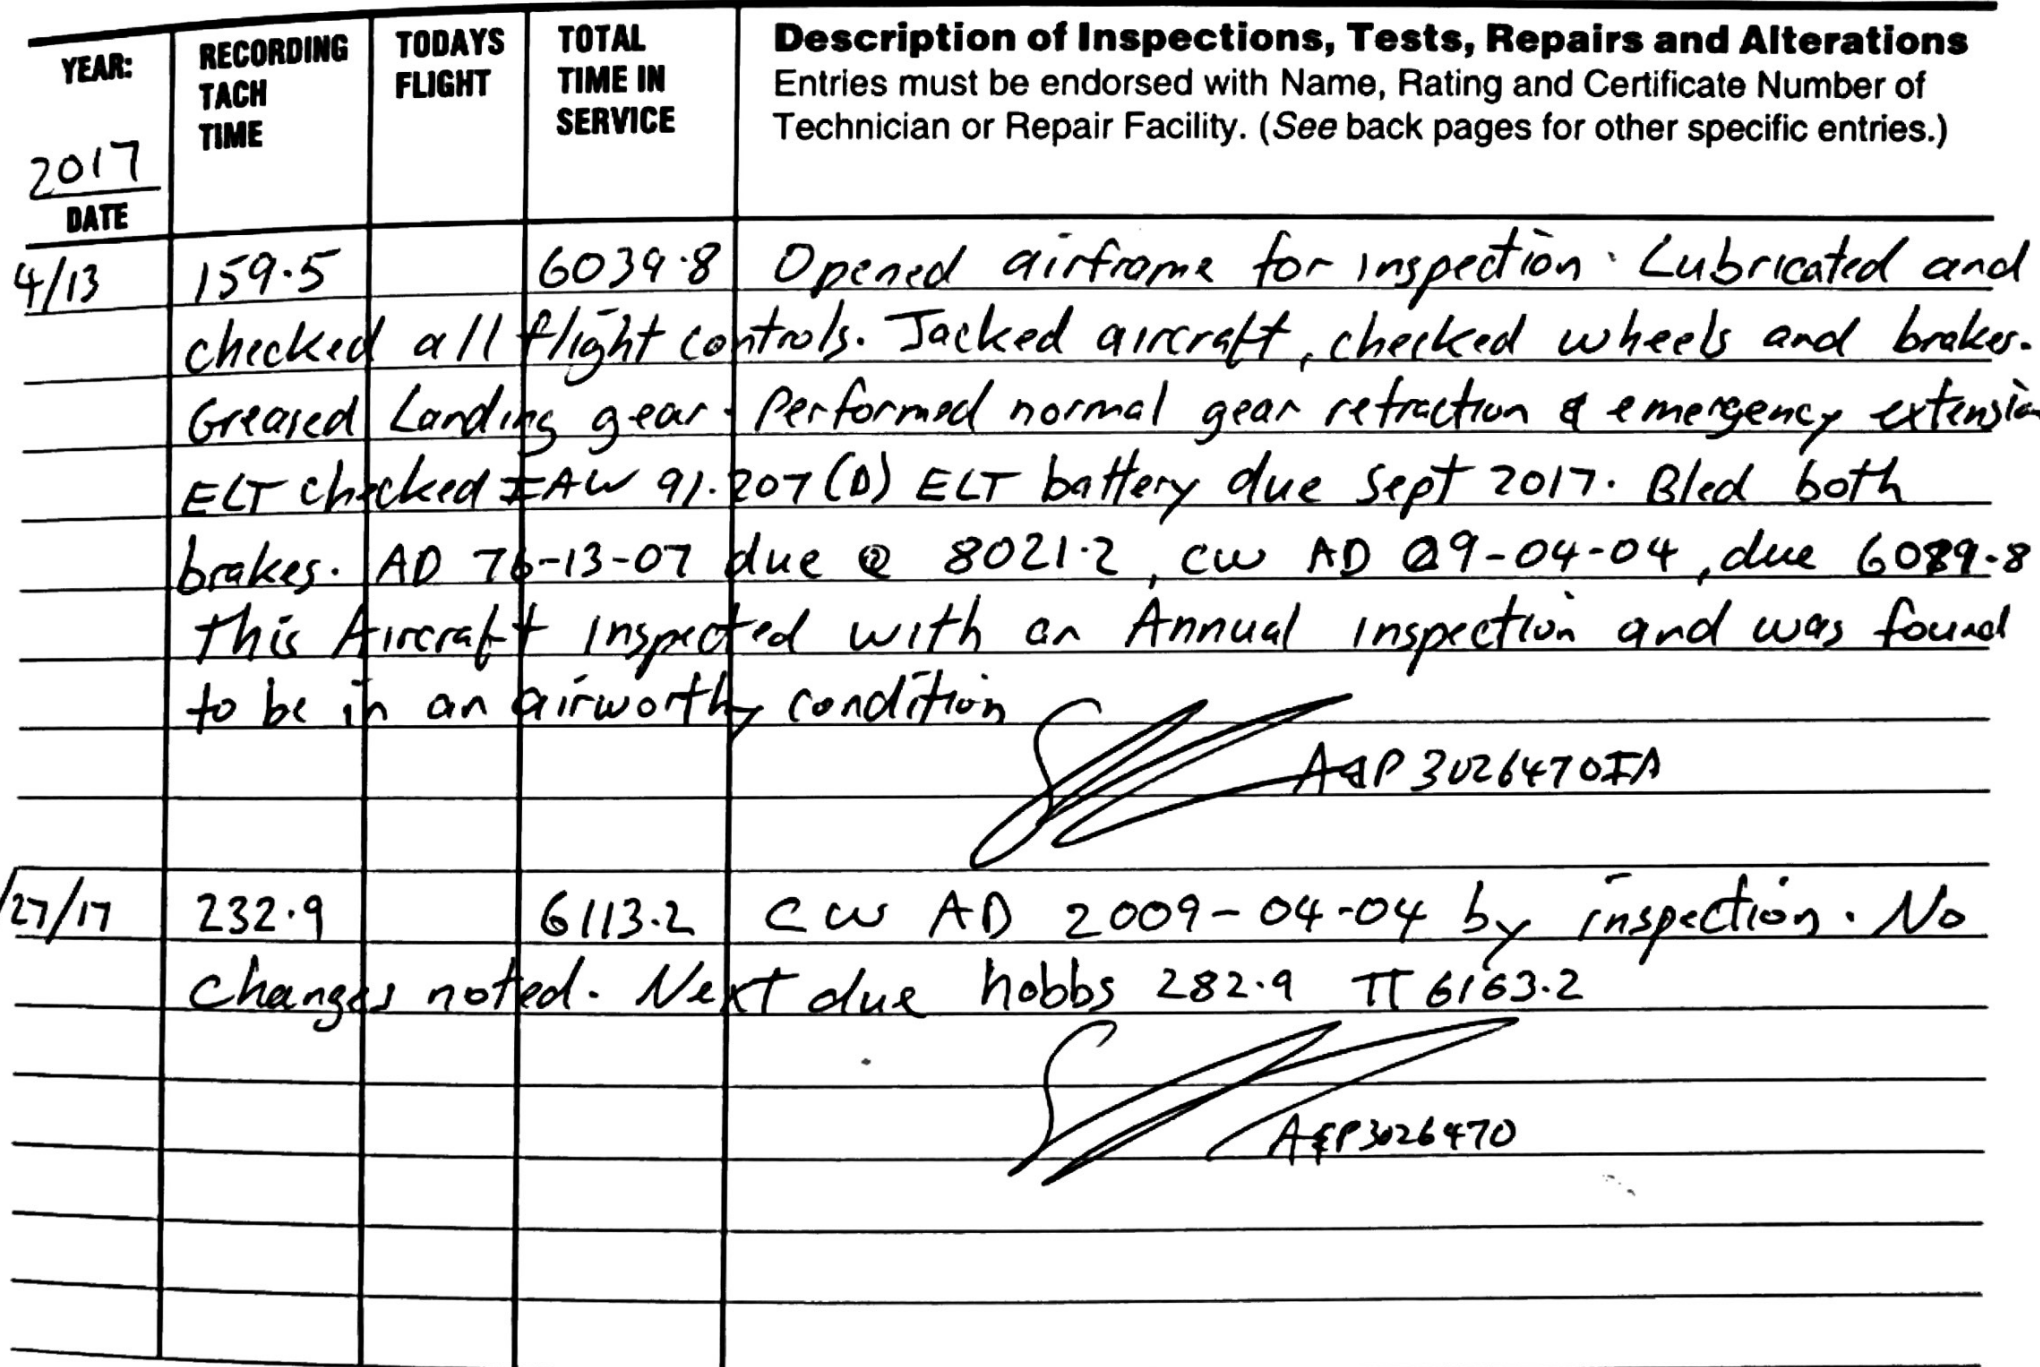 YEAR: RECORDING TACH TIME TODAYS FLIGHT TOTAL TIME IN SERVICE Description of Inspections, Tests, Repairs and Alterations
Entries must be endorsed with Name, Rating and Certificate Number of
Technician or Repair Facility. (See back pages for other specific entries.)
2017
DATE
4/13 159.5 6039.8 Opened airframe for inspection. Lubricated and
checked all flight controls. Jacked aircraft, checked wheels and brakes.
Greased Landing gear. Performed normal gear retraction & emergency extension
ELT checked IAW 91.207(D) ELT battery due Sept 2017. Bled both
brakes. AD 76-13-07 due @ 8021.2, CW AD 09-04-04, due 6089.8
This Aircraft inspected with an Annual inspection and was found
to be in an airworthy condition
A&P 3026470IA
/27/17 232.9 6113.2 CW AD 2009-04-04 by inspection. No
changes noted. Next due hobbs 282.9 TT 6163.2
A&P3026470